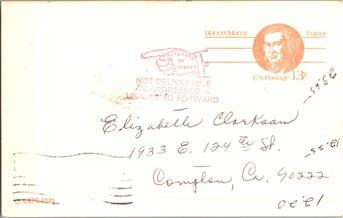 Robert Morris Patriot
U.S. Postage 13¢
RETURNED
TO
SENDER
NOT DELIVERABLE
AS ADDRESSED
UNABLE TO FORWARD
Elizabeth Clarkson
1933 E. 124 th St.
Compton, Ca. 90222
23.65
12.25
12.20